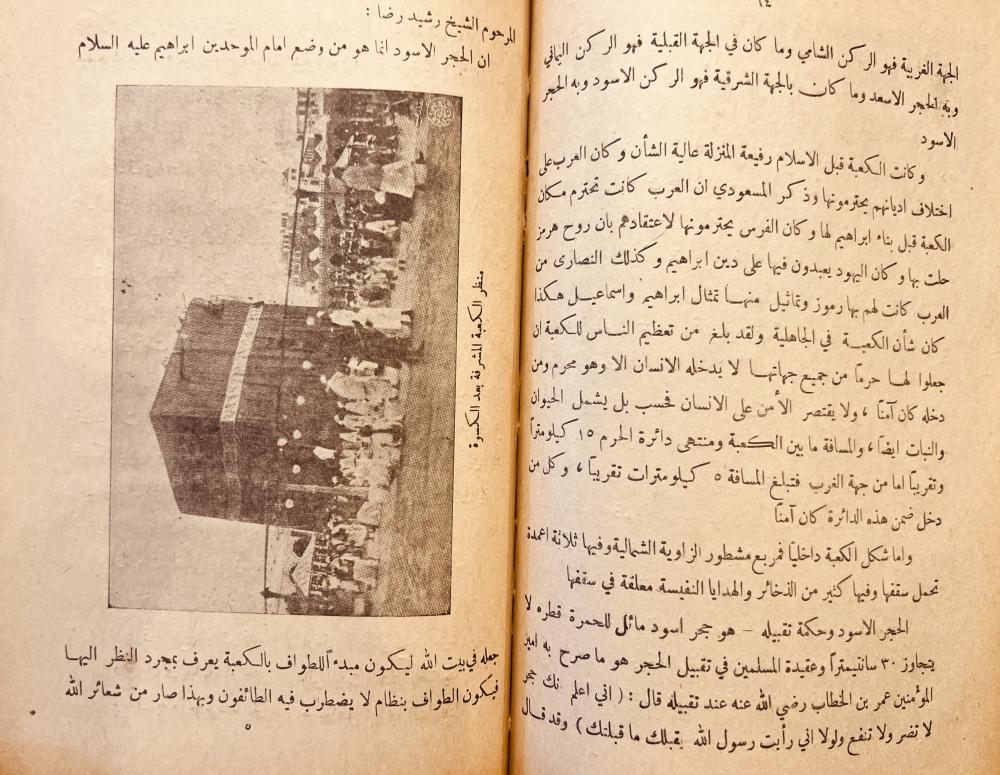 ١٤
الجهة الغربية فهو الركن الشامي وما كان في الجهة القبلية فهو الركن اليماني
وبه الحجر الاسعد وما كان بالجهة الشرقية فهو الركن الاسود وبه الحجر
الاسود
وكانت الكعبة قبل الاسلام رفيعة المنزلة عالية الشأن وكان العرب على
اختلاف اديانهم يحترمونها وذكر المسعودي ان العرب كانت تحترم مكان
الكعبة قبل بناء ابراهيم لها وكان الفرس يحترمونها لاعتقادهم بان روح هرمز
حلت بها وكان اليهود يعبدون فيها على دين ابراهيم وكذلك النصارى من
العرب كانت لهم بها رموز وتماثيل منها تمثال ابراهيم واسماعيل هكذا
كان شأن الكعبة في الجاهلية ولقد بلغ من تعظيم الناس للكعبة ان
جعلوا لها حرماً من جميع جهاتها لا يدخله الانسان الا وهو محرم ومن
دخله كان آمناً ، ولا يقتصر الأمن على الانسان فحسب بل يشمل الحيوان
والنبات ايضاً ، والمسافة ما بين الكعبة ومنتهى دائرة الحرم ١٥ كيلومتراً
وتقريباً اما من جهة الغرب فتبلغ المسافة ٥ كيلومترات تقريباً ، وكل من
دخل ضمن هذه الدائرة كان آمناً
واما شكل الكعبة داخلياً فمربع مشطور الزاوية الشمالية وفيها ثلاثة اعمدة
تحمل سقفها وفيها كثير من الذخائر والهدايا النفيسة معلقة في سقفها
الحجر الاسود وحكمة تقبيله – هو حجر اسود مائل للحمرة قطره لا
يتجاوز ٣٠ سانتيمتراً وعقيدة المسلمين في تقبيل الحجر هو ما صرح به امير
المؤمنين عمر بن الخطاب رضي الله عنه عند تقبيله قال : ( اني اعلم انك حجر
لا تضر ولا تنفع ولولا اني رأيت رسول الله يقبلك ما قبلتك ) وقد قال
المرحوم الشيخ رشيد رضا :
ان الحجر الاسود انما هو من وضع امام الموحدين ابراهيم عليه السلام
منظر الكعبة المشرفة بعد الكسوة
جعله في بيت الله ليكون مبدءاً للطواف بالكعبة يعرف بمجرد النظر اليها
فيكون الطواف بنظام لا يضطرب فيه الطائفون وبهذا صار من شعائر الله
٥